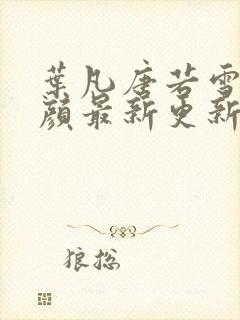 葉凡唐若雪
顔最新更新
狼總